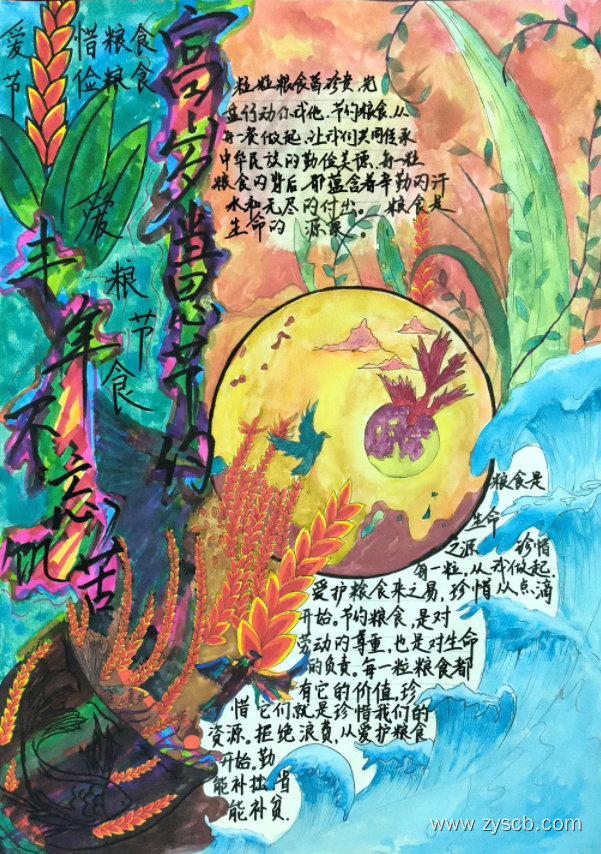 爱惜粮食
节俭粮食
富岁当思节约
丰年不忘饥苦
爱粮节食
粒粒粮食皆珍贵,光
盘行动你我他。节约粮食,从
每一餐做起,让我们共同传承
中华民族的勤俭美德,每一粒
粮食的背后,都蕴含着辛勤的汗
水和无尽的付出。粮食是
生命的源泉。
粮食是
生命
之源 珍惜
每一粒,从我做起。
爱护粮食来之易,珍惜从点滴
开始。节约粮食,是对
劳动的尊重,也是对生命
的负责。每一粒粮食都
有它的价值,珍
惜它们就是珍惜我们的
资源。拒绝浪费,从爱护粮食
开始。勤
能补拙,省
能补贫.
www.zyscb.com